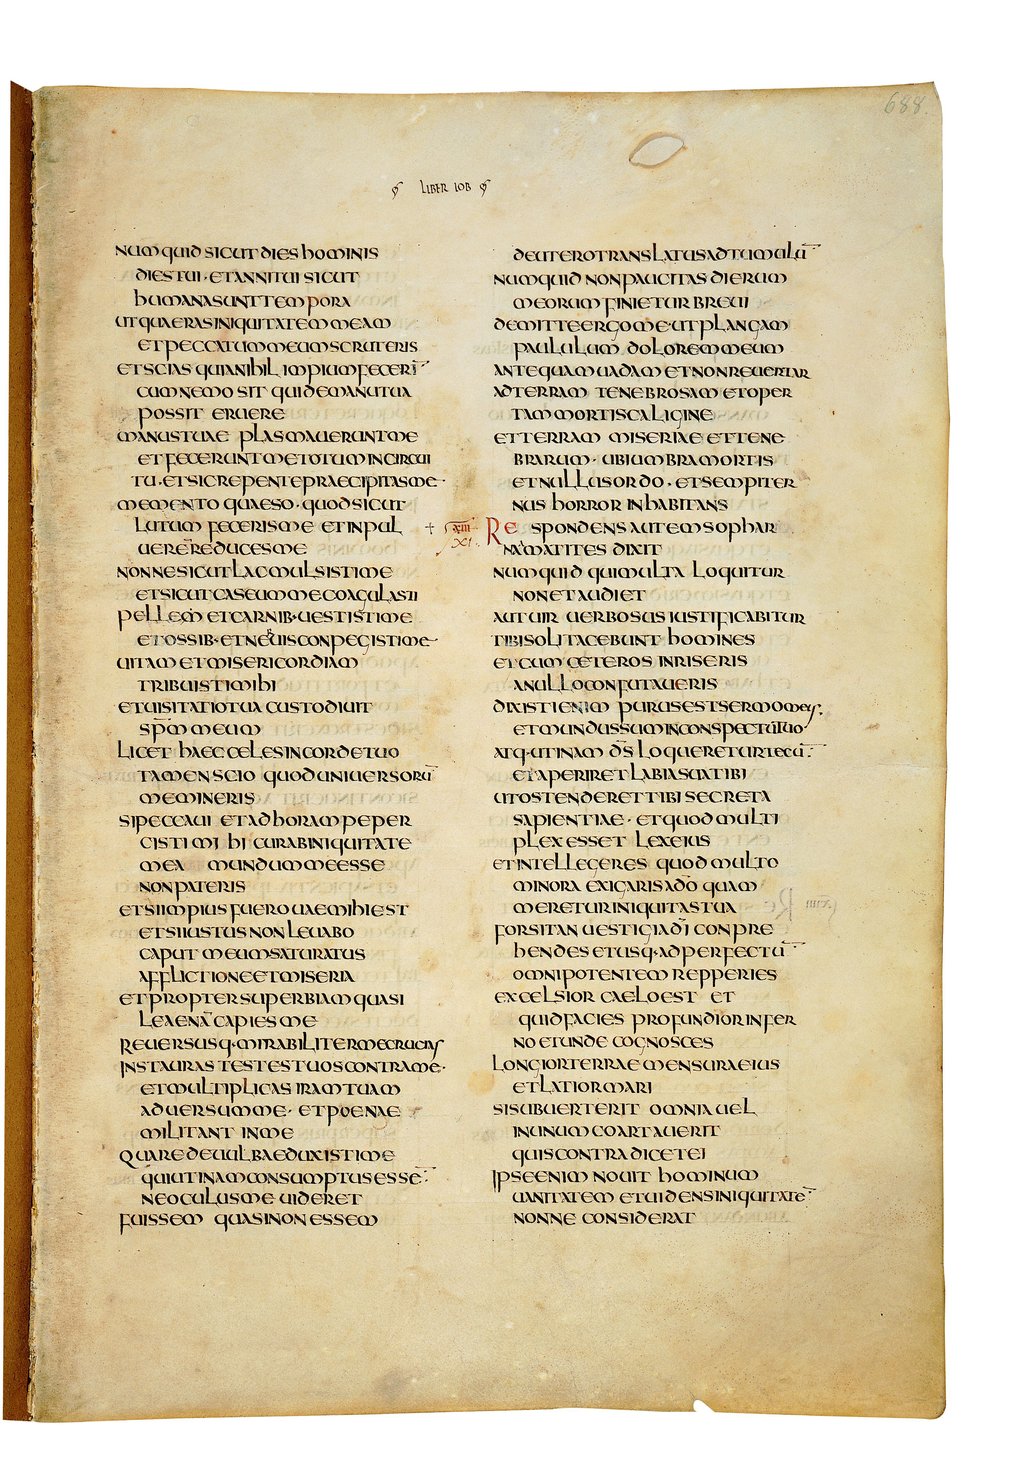 688.
LIBER IOB
NUMQUID SICUT DIES HOMINIS
DIES TUI · ET ANNI TUI SICUT
HUMANA SUNT TEMPORA
UT QUAERAS INIQUITATEM MEAM
ET PECCATUM MEUM SCRUTERIS
ET SCIAS QUIA NIHIL IMPIUM FECERĪ
CUM NEMO SIT QUI DE MANU TUA
POSSIT ERUERE
MANUS TUAE PLASMAUERUNT ME
ET FECERUNT ME TOTUM IN CIRCUI
TU · ET SIC REPENTE PRAECIPITAS ME ·
MEMENTO QUAESO · QUOD SICUT
LUTUM FECERIS ME ET IN PUL
UEREM REDUCES ME
NONNE SICUT LAC MULSISTI ME
ET SICUT CASEUM ME COAGULASTI
PELLEM ET CARNIB· UESTISTI ME
ET OSSIB· ET NERUIS CONPEGISTI ME
UITAM ET MISERICORDIAM
TRIBUISTI MIHI
ET UISITATIO TUA CUSTODIUIT
SPM̄ MEUM
LICET HAEC CELES IN CORDE TUO
TAMEN SCIO QUOD UNIUERSORŪ
MEMINERIS
SI PECCAUI ET AD HORAM PEPER
CISTI MIHI CUR AB INIQUITATE
MEA MUNDUM ME ESSE
NON PATERIS
ET SI IMPIUS FUERO UAE MIHI EST
ET SI IUSTUS NON LEUABO
CAPUT MEUM SATURATUS
AFFLICTIONE ET MISERIA
ET PROPTER SUPERBIAM QUASI
LEAENĀ CAPIES ME
REUERSUSQ· MIRABILITER ME CRUCIAS
INSTAURAS TESTES TUOS CONTRA ME ·
ET MULTIPLICAS IRAM TUAM
ADUERSUM ME · ET POENAE
MILITANT IN ME
QUARE DE UULBA EDUXISTI ME
QUI UTINAM CONSUMPTUS ESSĒ
NE OCULUS ME UIDERET
FUISSEM QUASI NON ESSEM
DE UTERO TRANSLATUS AD TUMULŪ
NUMQUID NON PAUCITAS DIERUM
MEORUM FINIETUR BREUI
DEMITTE ERGO ME · UT PLANGAM
PAULULUM DOLOREM MEUM
ANTEQUAM UADAM ET NON REUERTAR
AD TERRAM TENEBROSAM ET OPER
TAM MORTIS CALIGINE
ET TERRAM MISERIAE ET TENE
BRARUM · UBI UMBRA MORTIS
ET NULLUS ORDO · ET SEMPITER
NUS HORROR INHABITANS
† XIII
XI·
RESPONDENS AUTEM SOPHAR
NAMATITES DIXIT
NUMQUID QUI MULTA LOQUITUR
NON ET AUDIET
AUT UIR UERBOSUS IUSTIFICABITUR
TIBI SOLI TACEBUNT HOMINES
ET CUM CETEROS INRISERIS
A NULLO CONFUTAUERIS
DIXISTI ENIM PURUS EST SERMO MEUS·
ET MUNDUS SUM IN CONSPECTU TUO
ATQ· UTINAM DS̄ LOQUERETUR TECŪ·
ET APERIRET LABIA SUA TIBI
UT OSTENDERET TIBI SECRETA
SAPIENTIAE · ET QUOD MULTI
PLEX ESSET LEX EIUS
ET INTELLEGERES QUOD MULTO
MINORA EXIGARIS A DŌ QUAM
MERETUR INIQUITAS TUA
FORSITAN UESTIGIA DĪ CONPRE
HENDES ET USQ· AD PERFECTŪ
OMNIPOTENTEM REPPERIES
EXCELSIOR CAELO EST ET
QUID FACIES PROFUNDIOR INFER
NO ET UNDE COGNOSCES
LONGIOR TERRAE MENSURA EIUS
ET LATIOR MARI
SI SUBUERTERIT OMNIA UEL
IN UNUM COARTAUERIT
QUIS CONTRADICET EI
IPSE ENIM NOUIT HOMINUM
UANITATEM ET UIDENS INIQUITATĒ
NONNE CONSIDERAT